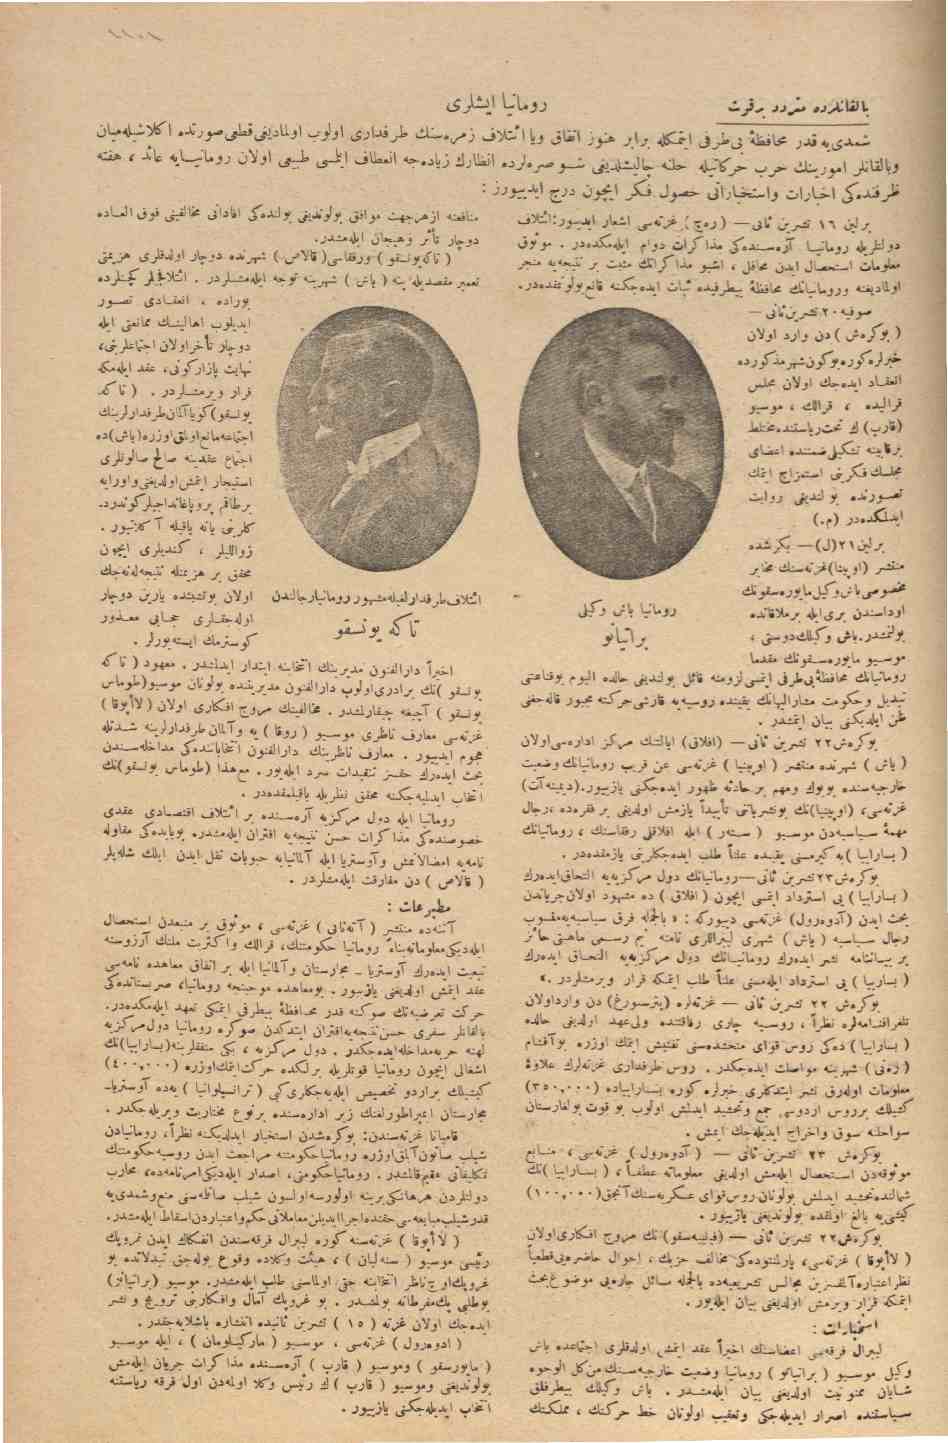 بالقانلرده متردد بر قوت
رومانیا ایشلری
شمدی‌یه قدر محافظهٔ بی‌طرفی ایتمکله برابر هنوز اتفاق ویا ائتلاف زمره‌سنك طرفداری اولوب اولمادیغی قطعی صورتده اکلاشیله‌میان
وبالقانلر امورینك حرب حرکاتیله حلنه چالیشلدیغی شو صره‌لرده انظارك زیاده‌جه انعطاف ایتمسی طبیعی اولان رومانیایه عائد ، هفته
ظرفنده‌کی اخبارات واستخباراتی حصول فکر ایچون درج ایدییورز :
برلین ١٦ تشرین ثانی — (ره‌چ) غزته‌سی اشعار ایدییور: ائتلاف
دولتلریله رومانیا آره‌سنده‌کی مذاکرات دوام ایله‌مکده‌در . موثوق
معلومات استحصال ایدن محافل ، اشبو مذاکراتك مثبت بر نتیجه‌یه منجر
اولمادیغنه ورومانیانك محافظهٔ بیطرفیده ثبات ایده‌جکنه قانع بولونمقده‌در.
صوفیه ٢٠ تشرین ثانی —
(بوکرش) دن وارد اولان
خبرلره کوره بوکون شهر مذکورده
انعقاد ایده‌جك اولان مجلس
قرالیده ، قرالك ، موسیو
(قارپ) ك تحت ریاستنده مختلط
برقابینه تشکیلی ضمننده اعضای
مجلسك فکرینی استمزاج ایتمك
تصورنده بولندیغی روایت
ایدلمکده‌در (م.)
برلین ٢١(ل) — بکرشده
منتشر (اوپینیا) غزته‌سنك مخابر
مخصوصی باش وکیل مابوره‌سقونك
اوداسندن بری ایله برملاقاتده
بولنمشدر. باش وکیلك دوستی ،
موسیو مابوره‌سقونك مقدما
رومانیانك محافظهٔ بی‌طرفی ایتمسی لزومنه قائل بولندیغی حالده الیوم بوقناعتی
تبدیل وحکومت مشارالیهانك یقینده روسیه‌یه قارشی حرکته مجبور قاله‌جغی
ظن ایلدیکنی بیان ایتمشدر .
بوکرش ٢٢ تشرین ثانی — (افلاق) ایالتنك مرکز اداره‌سی اولان
(یاش) شهرنده منتشر (اوپینیا) غزته‌سی عن قریب رومانیانك وضعیت
خارجیه‌سنده بویوك ومهم بر حادثه ظهور ایده‌جکنی یازییور. (دیمنه‌آت)
غزته‌سی، (اوپینیا)نك بونشریاتنی تأییداً یازمش اولدیغی بر فقره‌ده ،رجال
مهمهٔ سیاسیه‌دن موسیو (سته‌ر) ایله افلاقلی رفقاسنك ، رومانیانك
(بسارابیا)یه کیرمسنی یقینده علناً طلب ایده‌جکلرینی یازمقده‌در.
بوکرش ٢٣ تشرین ثانی — رومانیانك دول مرکزیه‌یه التحاق ایده‌رك
(بسارابیا) یی استرداد ایتمسی ایچون (افلاق) ده مشهود اولان جریاندن
بحث ایدن (آده‌ورول) غزته‌سی دییورکه : « بالجمله فرق سیاسیه‌یه منسوب
رجال سیاسیه (یاش) شهری لیبراللری نامنه نیم رسمی ماهیتی حائز
بر بیاننامه نشر ایده‌رك رومانیانك دول مرکزیه‌یه التحاق ایده‌رك
(بسارابیا) یی استرداد ایله‌مسنی علناً طلب ایتمکه قرار ویرمشلردر .»
بوکرش ٢٢ تشرین ثانی — غزته‌لره (پترسبورغ) دن وارد اولان
تلغرافنامه‌لره نظراً ، روسیه چاری رفاقتنده ولی‌عهد اولدیغی حالده
(بسارابیا) ده‌کی روس قوای متحشده‌سنی تفتیش ایتمك اوزره بوآقشام
(ره‌نی) شهرینه مواصلت ایده‌جکدر. روس طرفداری غزته‌لرك علاوهٔ
معلومات اوله‌رق نشر ایتدکلری خبرلره کوره بسارابیاده (٣٥٠,٠٠٠)
کشیلك برروس اردوسی جمع وتحشید ایدلمش اولوب بو قوت بولغارستان
سواحلنه سوق واخراج ایدیله‌جك ایمش .
بوکرش ٢٣ تشرین ثانی — (آده‌ورول) غزته‌سی ، منابع
موثوقه‌دن استحصال ایله‌مش اولدیغی معلوماته عطفاً ، (بسارابیا)نك
شمالنده تحشید ایدلمش بولونان روس قوای عسکریه‌سنك آنجق (١٠٠,٠٠٠)
کیشی‌یه بالغ اولمقده بولوندیغنی یازییور .
بوکرش ٢٢ تشرین ثانی — (فیلیپه‌سقو) نك مروج افکاری اولان
(لاآپوقا) غزته‌سی، پارلمنتوده‌کی مخالف حزبك ، احوال حاضره‌یی قطعیاً
نظر اعتباره آلمقسزین مجالس تشریعیه‌ده بالجمله مسائل جاریه‌یی موضوع بحث
ایتمکه قرار ویرمش اولدیغنی بیان ایله‌یور .
استخبارات :
لیبرال فرقه‌سی اعضاسنك اخیراً عقد ایتمش اولدقلری اجتماعده باش
وکیل موسیو (براتیانو) رومانیا وضعیت خارجیه‌سنك من کل الوجوه
شایان ممنونیت اولدیغنی بیان ایله‌مشدر . باش وکیلك بیطرفلق
سیاستنده اصرار ایدیله‌جکی وتعقیب اولونان خط حرکتك ، مملکتك
رومانیا باش وکیلی
براتیانو
منافعنه ازهرجهت موافق بولوندیغی یولنده‌کی افاداتی مخالفینی فوق العاده
دوچار تأثر وهیجان ایله‌مشدر.
(تاکه یونسقو) ورفقاسی (قالاص) شهرنده دوچار اولدقلری هزیمتی
تعمیر مقصدیله ینه (یاش) شهرینه توجه ایله‌مشلردر . ائتلافجیلر کچنلرده
بوراده ، انعقادی تصور
ایدیلوب اهالینك ممانعتی ایله
دوچار تأخر اولان اجتماعلرینی،
نهایت پازارکونی، عقد ایله‌مکه
قرار ویرمشلردر . (تاکه
یونسقو) کویا آلمان طرفدارلرینك
اجتماعه مانع اولمق اوزره (یاش) ده
اجتماع عقدینه صالح صالونلری
استیجار ایتمش اولدیغنی واورایه
برطاقم پروپاغانداجیلر کوندرد-
کلرینی یانه یاقیله آکلاتیور .
زواللیلر ، کندیلری ایچون
محقق بر هزیمتله نتیجه‌لنه‌جك
اولان بوتشبثده یارین دوچار
اوله‌جقلری حجابی معذور
کوسترمك ایسته‌یورلر .
ائتلاف طرفدارلغیله مشهور رومانیا رجالندن
تاکه یونسقو
اخیراً دارالفنون مدیرینك انتخابنه ابتدار ایدلمشدر . معهود (تاکه
یونسقو)نك برادری اولوب دارالفنون مدیریتنده بولونان موسیو (طوماس
یونسقو) آچیغه چیقارلمشدر. مخالفینك مروج افکاری اولان (لاآپوقا)
غزته‌سی معارف ناظری موسیو (دوقا) یه وآلمان طرفدارلرینه شدتله
هجوم ایدییور . معارف ناظرینك دارالفنون انتخاباتنده‌کی مداخله‌سندن
بحث ایده‌رك حقسز تنقیدات سرد ایله‌یور. مع‌هذا (طوماس یونسقو)نك
انتخاب ایدیله‌جکنه محقق نظریله باقیلمقده‌در .
رومانیا ایله دول مرکزیه آره‌سنده بر ائتلاف اقتصادی عقدی
خصوصنده‌کی مذاکرات حسن نتیجه‌یه اقتران ایله‌مشدر. بوبابده‌کی مقاوله
نامه‌یه امضالانمش وآوستریا ایله آلمانیایه حبوبات نقل ایدن ایلك شلپلر
(قالاص) دن مفارقت ایله‌مشلردر .
مطبوعات :
آتنه‌ده منتشر (آته‌نائی) غزته‌سی ، موثوق بر منبعدن استحصال
ایله‌دیکی معلوماته بناءً رومانیا حکومتنك، قرالك واکثریت ملتك آرزوسنه
تبعیت ایده‌رك آوستریا - مجارستان وآلمانیا ایله بر اتفاق معاهده نامه‌سی
عقد ایتمش اولدیغنی یازییور . بومعاهده موجبنجه رومانیا، صربستانده‌کی
حرکت تعرضیه‌نك صوکنه قدر محافظهٔ بیطرفی ایتمکی تعهد ایله‌مکده‌در.
بالقانلر سفری حسن نتیجه‌یه اقتران ایتدکدن صوکره رومانیا دول مرکزیه
لهنه حربه مداخله ایده‌جکدر . دول مرکزیه ، یکی متفقلرینه (بسارابیا)نك
اشغالی ایچون رومانیا قوتلریله برلکده حرکت ایتمك اوزره (٤٠٠,٠٠٠)
کیشیلك براردو تخصیص ایله‌یه‌جکلری کبی (ترانسیلوانیا) یه‌ده آوستریا-
مجارستان ایمپراطورلغنك زیر اداره‌سنده برنوع مختاریت ویریله‌جکدر.
قامپانا غزته‌سندن: بوکرشدن استخبار ایدلدیکنه نظراً، رومانیادن
شیلپ صاتون آلمق اوزره رومانیا حکومتنه مراجعت ایدن روسیه حکومتنك
تکلیفاتی عقیم قالمشدر . رومانیا حکومتی، اصدار ایلدیکی امرنامه‌ده، محارب
دولتلردن هر هانکی برینه اولورسه اولسون شیلپ صاتلمه‌سنی منع وشمدی‌یه
قدر شیلپ مبایعه‌سی حقنده اجرا ایدیلن معاملاتی حکم واعتباردن اسقاط ایله‌مشدر.
(لاآپوقا) غزته‌سنه کوره لیبرال فرقه‌سندن انفکاك ایدن غروپك
رئیسی موسیو (سته‌لیان) ، هیئت وکلاده وقوع بوله‌جق تبدلاتده بو
غروپك اوچ ناظر انتخابنه حقی اولماسنی طلب ایله‌مشدر. موسیو (براتیانو)
بوطلبی پك مفرطانه بولمشدر . بو غروپك آمال وافکارینی ترویج و نشر
ایده‌جك اولان غزته (١٥) تشرین ثانیده انتشاره باشلایه‌جقدر.
(ادوه‌رول) غزته‌سی ، موسیو (مارکیلومان) ، ایله موسیو
(مایورسقو) وموسیو (قارپ) آره‌سنده مذاکرات جریان ایله‌مش
بولوندیغنی وموسیو (قارپ) ك رئیس وکلا اولمه‌دن اول فرقه ریاستنه
انتخاب ایدیله‌جکنی یازییور .